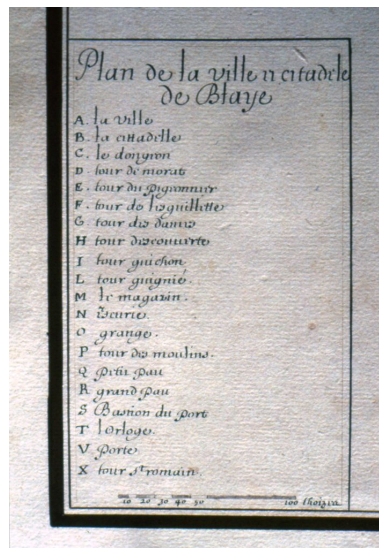 Plan de la ville et citadele
de Blaye
A. la ville
B. la cittadelle
C. le dongron
D. tour de morat
E. tour du pigeonnier
F. tour de l'esguillette
G tour des dames
H tour descouuerte
I tour guichon
L tour guignié.
M le magazin.
N Escurie.
O grange.
P tour des moulins.
Q Petit pau
R grand pau
S Bastion du port
T l'orloge.
V Porte
X tour st romain.
10 20 30 40 50 100 thoizez